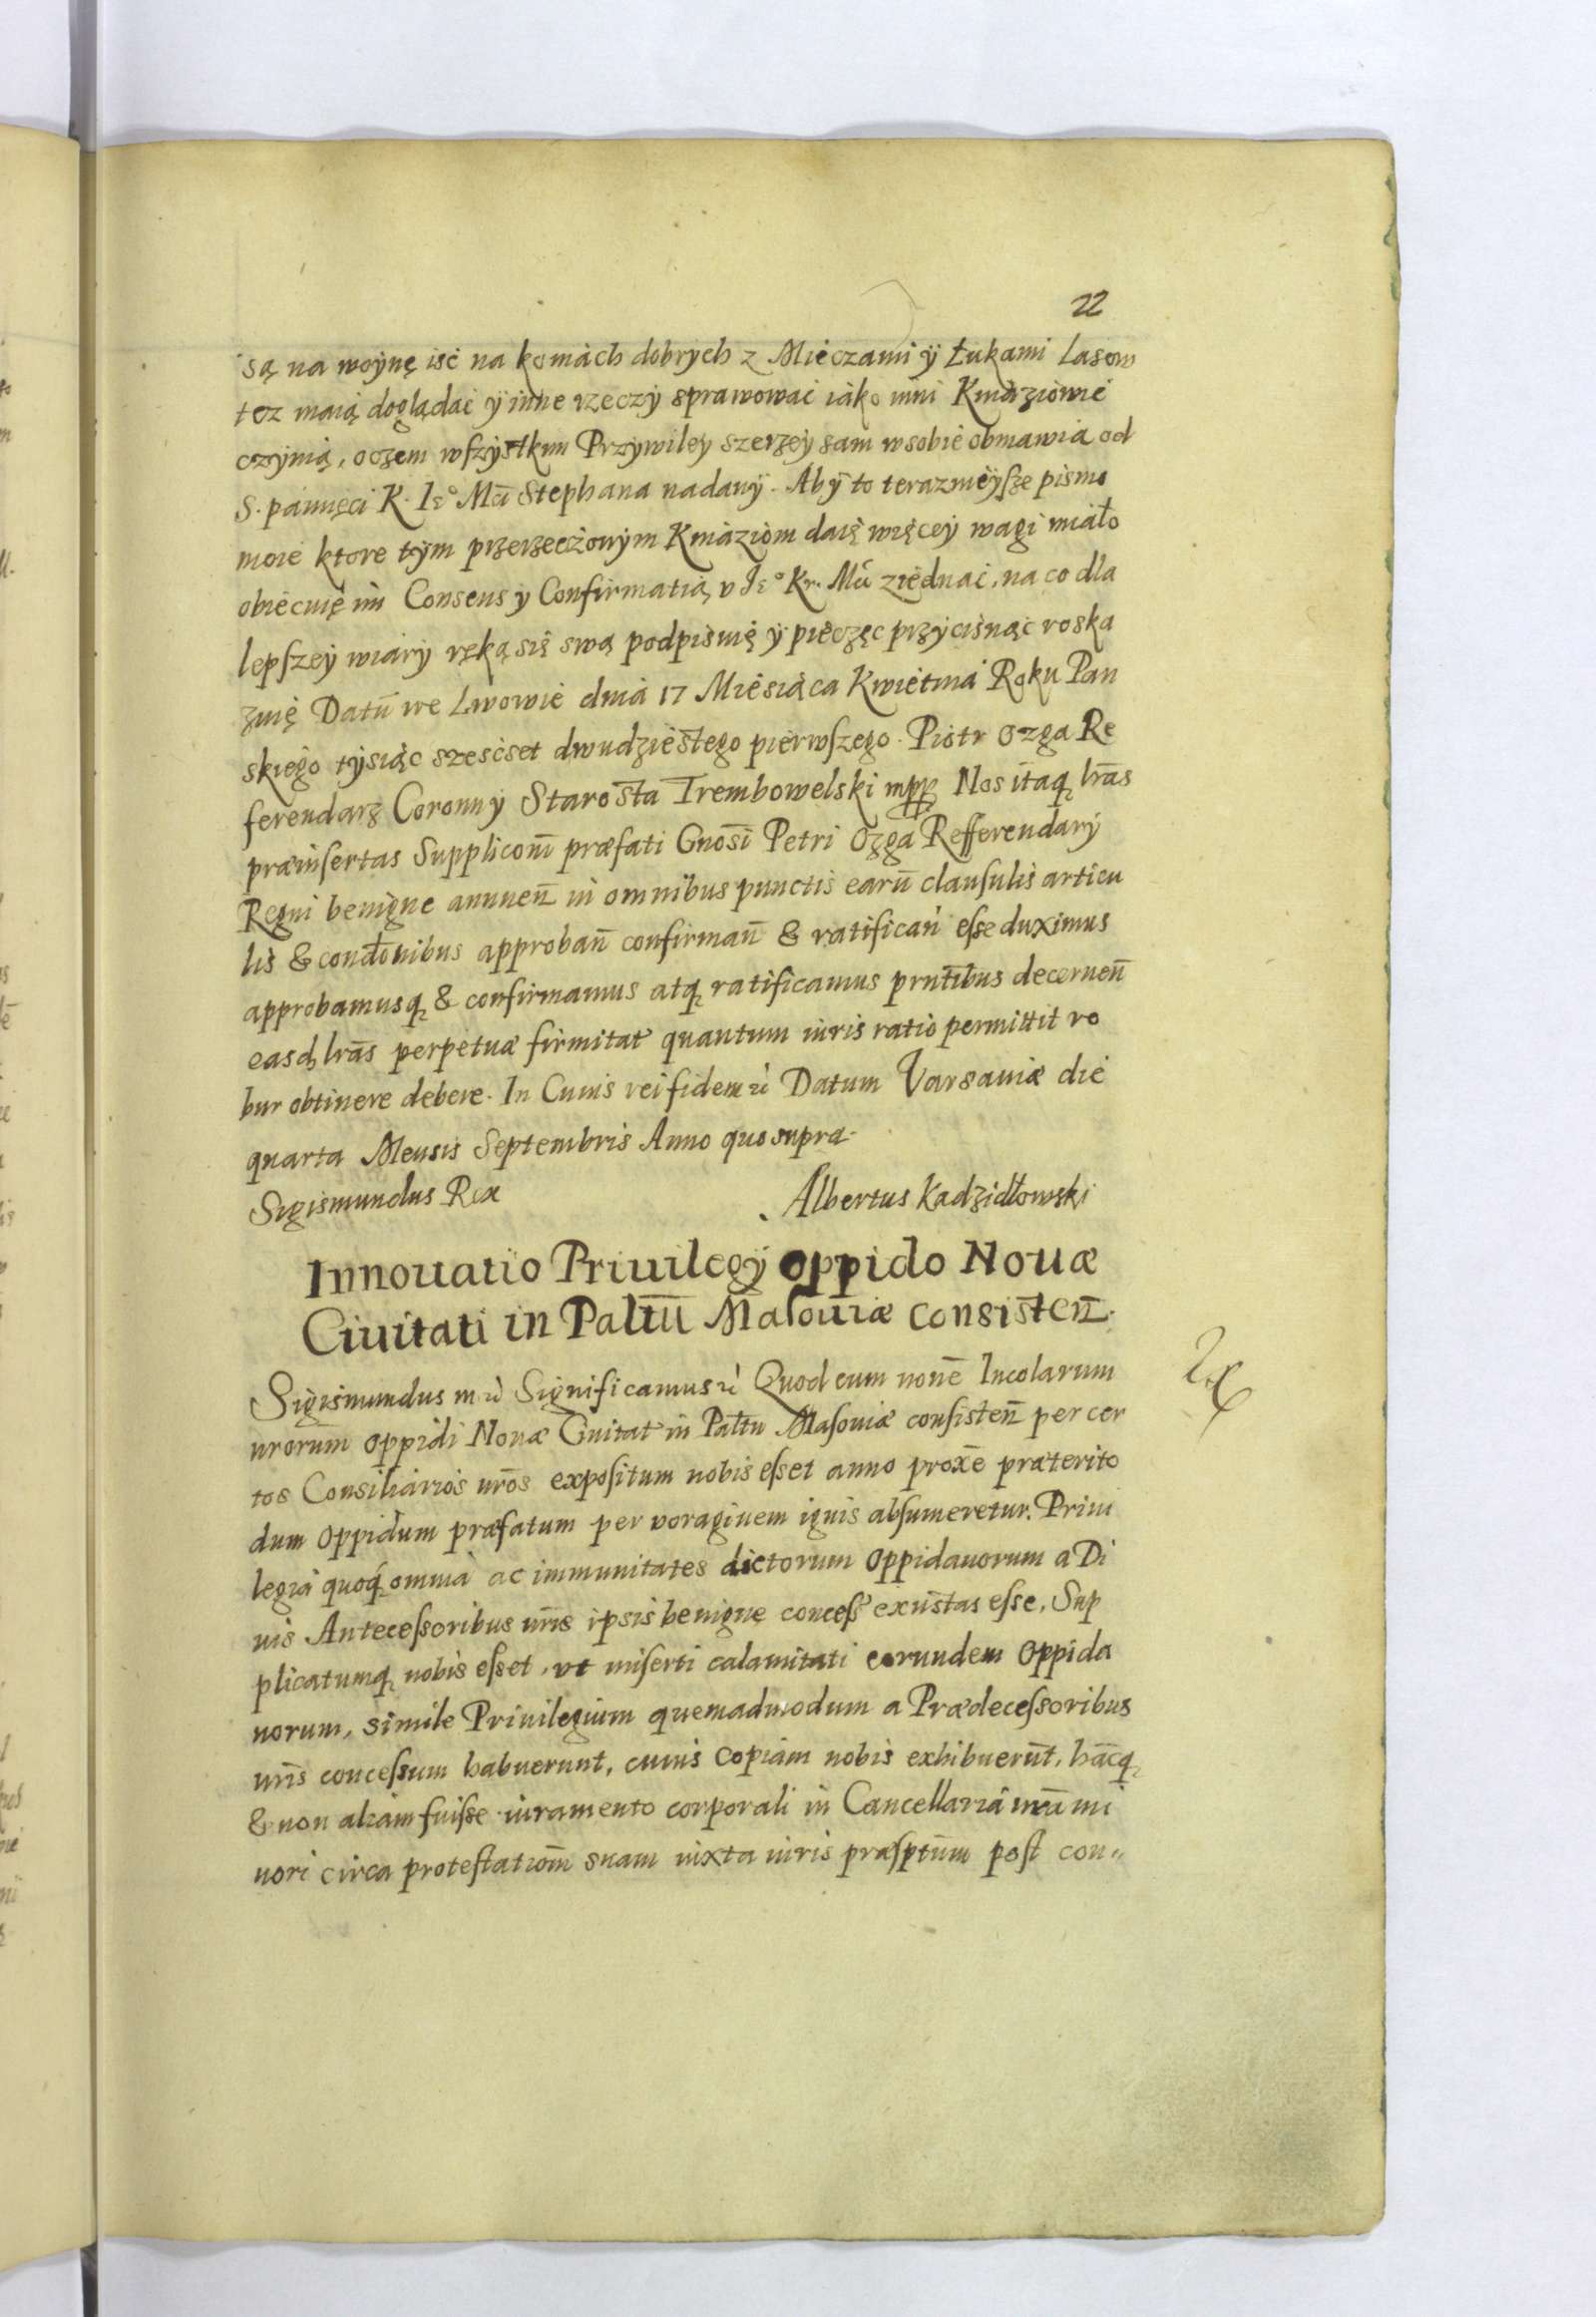 22
są na woynę isć na koniach dobrych z Mieczami ÿ Łukami Lasow
tez maią doglądac ÿ inne rzeczÿ sprawowac iako inni Kniaziowie
czÿnią, oczem wszÿstkim Przÿwileÿ szerzeÿ sam wsobie obmawia od
S. pamięci K. Ie° Mci Stephana nadanÿ. Abÿ to teraznieÿsze pismo
moie ktore tÿm przerzeczonÿm Kniaziom daię więceÿ wagi miało
obiecuię im Consens y Confirmatią v Ie° Kr. Mci ziednac, na co dla
lepszeÿ wiarÿ ręką się swą podpisuię ÿ pieczęc przÿcisnąc roska
zuię Datū we Lwowie dnia 17 Miesiąca Kwietnia Roku Pan
skiego tÿsiąc szescset dwudziestego pierwszego. Piotr Ozga Re
ferendarz Coronny Starosta Trembowelski mpp Nos itaq lrās
præinsertas Suppliconi præfati Gnosi Petri Ozga Refferendarÿ
Regni benigne annuen̄ in omnibus punctis earū clausulis articu
lis & condōnibus approban̄ confirman̄ & ratifican̄ esse duximus
approbamusq & confirmamus atq ratificamus prn̄tibus decernen̄
easd lrās perpetuæ firmitat quantum iuris ratio permittit ro
bur obtinere debere. In Cuius rei fidem rc̀ Datum Varsauiæ die
quarta Mensis Septembris Anno quo supra.
Sigismundus Rex Albertus Kadzidłowski
Innouatio Priuilegÿ oppido Nouæ
Ciuitati in Paltū Masouiæ consisten̄.
Sigismundus m rc̀ Significamus rc̀ Quod cum noñe Incolarum
nrorum oppidi Nouæ Ciuitat in Paltu Masouiæ consisten̄ per cer
tos Consiliarios nrōs expositum nobis esset anno proxē præterito
dum oppidum præfatum per voraginem ignis absumeretur. Priui
legia quoq omnia ac immunitates dictorum oppidanorum a Di
uis Antecessoribus nrīs ipsis benigne concess exustas esse, Sup
plicatumq nobis esset, vt miserti calamitati eorundem oppida
norum, simile Priuilegium quemadmodum a Prædecessoribus
nrīs concessum habuerunt, cuius copiam nobis exhibuerūt, hācq
& non aliam fuisse iuramento corporali in Cancellaria nrā mi
nori circa protestatiom̄ suam iuxta iuris præsptum post con„